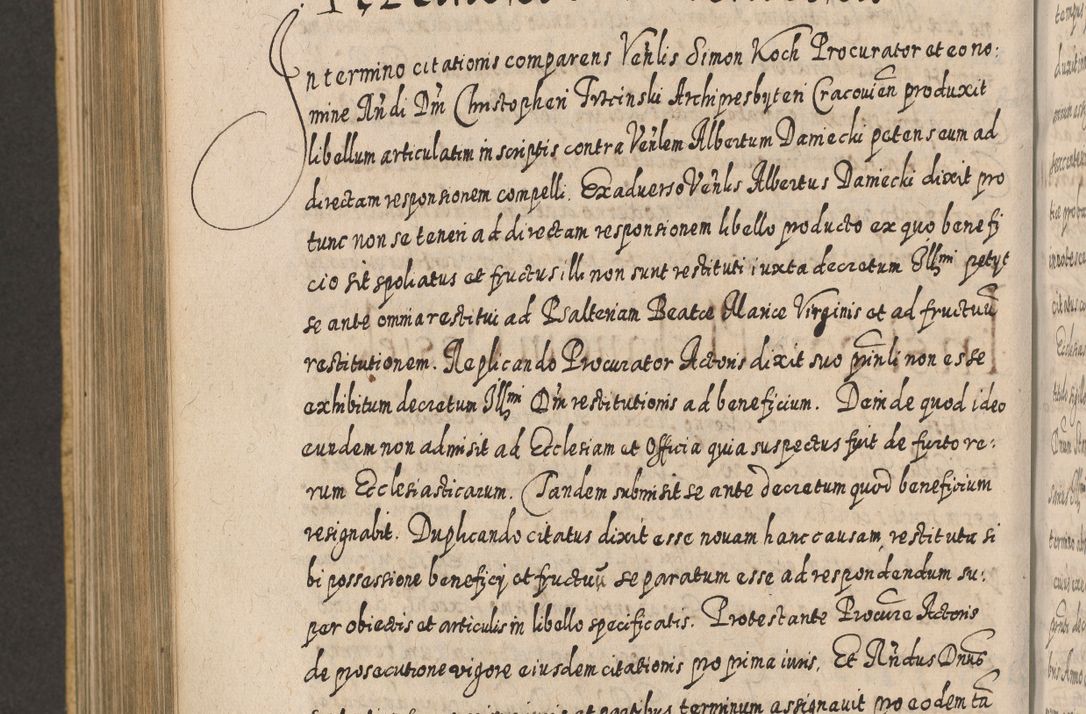 In termino citationis comparens Venlis Simon Koch Procurator et eo no:
mine Rndi Dm Christopheri Trzcinski Archipresbyteri Cracovien produxit
libellum articulatim in scriptis contra Venlem Albertum Daniecki petens eum ad
directam responsionem compelli. Ex adverso Venlis Albertus Daniecki dixit pro
tunc non se teneri ad directam responsionem libello producto ex quo benefi
cio sit spoliatus et fructus illi non sunt restituti iuxta decretum Illmi petyt
se ante omnia restitui ad Psalteriam Beatæ Mariæ Virginis et ad fructuu
restitutionem. Replicando Procurator Actoris dixit suo prinli non esse
exhibitum decretum Illmi Dm restitutionis ad beneficium. Deinde quod ideo
eundem non admisit ad Ecclesiam et Officia quia suspectus fuit de furto re:
rum Ecclesiasticarum. Tandem submisit se ante decretum quod beneficium
resignabit. Duplicando citatus dixit esse novam hanc causam, restituta si
bi possessione beneficij et fructuu separatum esse ad respondendum su:
per obiectis et articulis in libello specificatis. Protestante Procure Actoris
de prosecutione vigore eiusdem citationis pro prima iuris. Et Rndus Dnus
et partibus terminum assignavit pro eodem ta